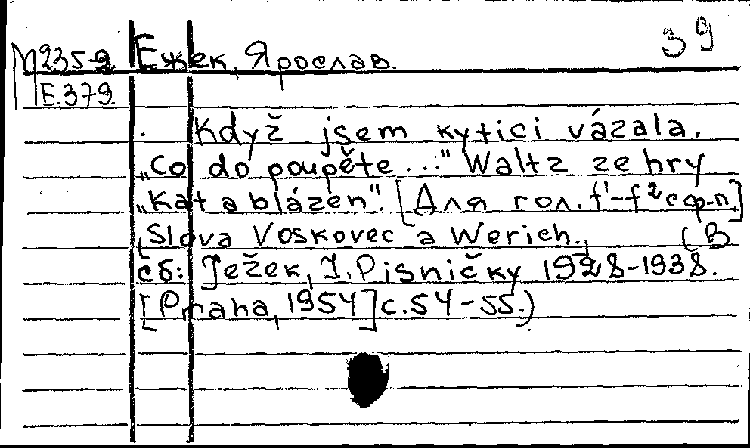 39
М235-2 Ежек, Ярослав.
Е.379
Když jsem kytici vázala.
„Co do poupěte..." Waltz ze hry
„Kat a blázen". [Для гол. f¹-f² с ф-п.]
Slova Voskovec a Werich. (В
сб: Ježek, J. Pisničky 1928-1938.
[Praha, 1954] с. 54-55.)